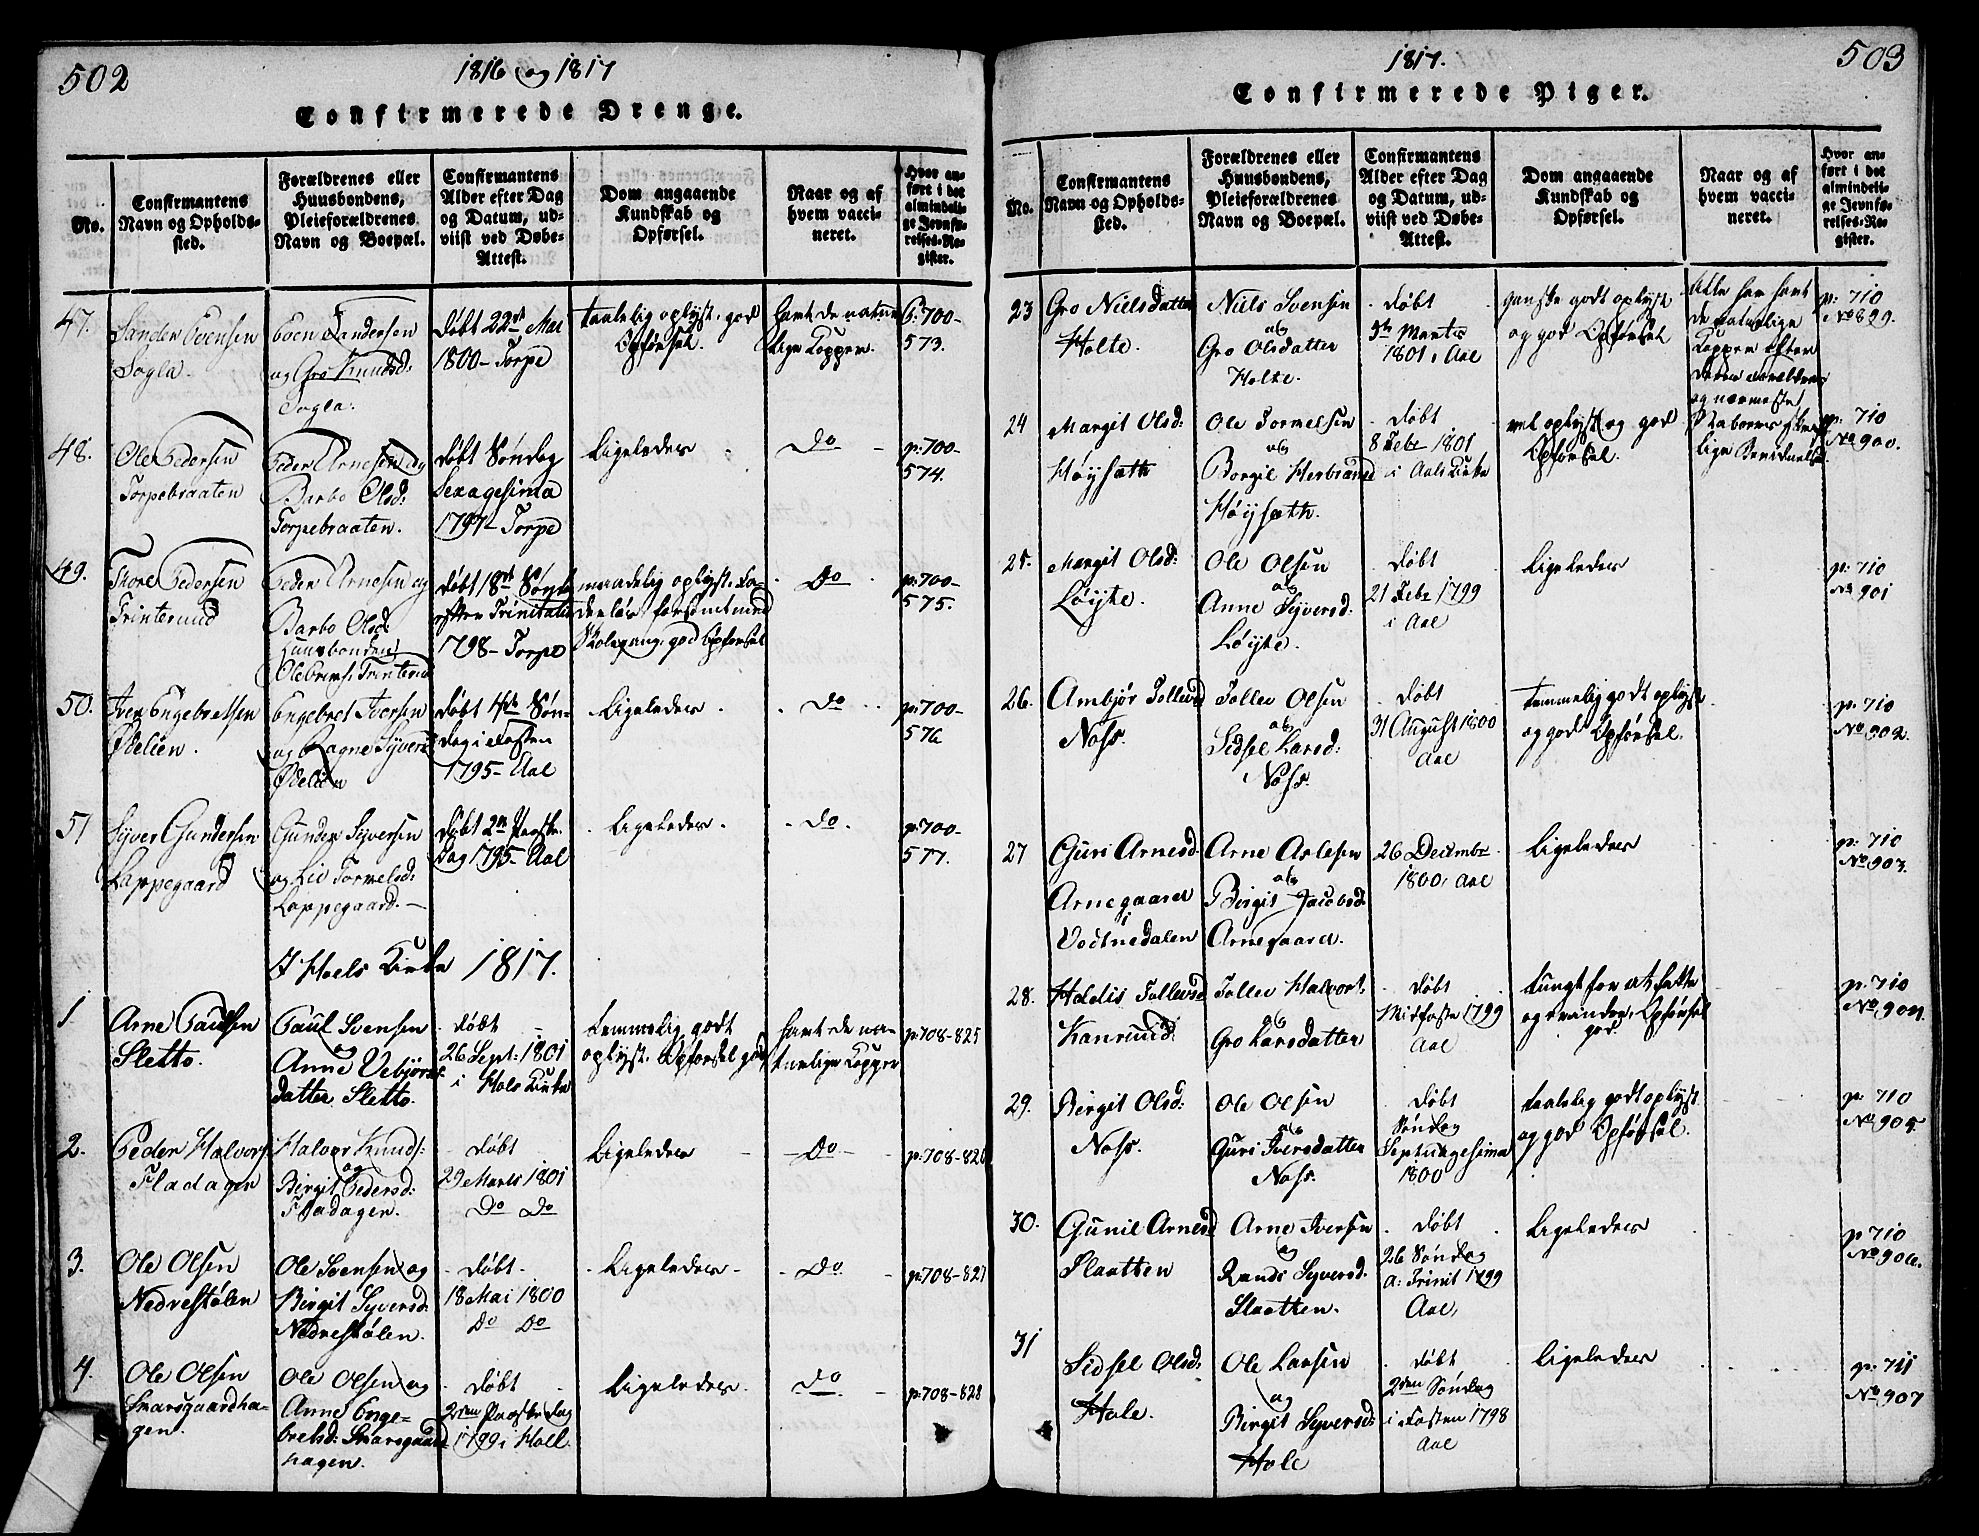 502
1816 og 1817
Confirmerede Drenge.
No.
Confirmantens Navn og Opholds-
sted.
Forældrenes eller
Huusbondens,
Pleieforældrenes
Navn og Boepæl.
Confirmantens
Alder efter Dag
og Datum, ud-
viist ved Døbe-
Attest.
Dom angaaende
Kundskab og
Opførsel.
Naar og af
hvem vacci-
neret.
Hvor an-
ført i det
almindeli-
ge Jevnfø-
relses-Re-
gister.
47.
Sander Evensen
Sogla.
Even Sandersen
og Gro Knudsd:
Sogla.
døbt 22de Mai
1800 - Torpe
taalelig oplyst, god
Opførsel.
havt de natur-
lige Kopper.
P. 700-
573.
48.
Ole Pedersen
Torpebraaten
Peder Arnesen og
Barbo Olsd:
Torpebraaten.
døbt Søndag
Sexagesima
1797 - Torpe
Ligeledes
Do
p: 700-
574.
49.
Thore Pedersen
Trinterud
Peder Arnesen og
Barbo Olsd:
Huusbonden
Trinterud
døbt 18de Sønd.
efter Trinitatis
1798 - Torpe
maadelig oplyst,
forsømt med
Skolegang, god Opførsel
Do
p: 700-
575.
50.
Iver Engebretsen
Ødelien.
Engebret Iversen
og Ragne Syvers
Ødelien
døbt 4de Søn-
dag i Fasten
1795 - Aal
Ligeledes
Do
p: 700-
576
51
Syver Gundersen
Lappegaard
Gunder Syversen
og Liv Tormelsd:
Lappegaard.
døbt 2den Paaske-
dag 1795 - Aal
Ligeledes.
Do.
p: 700-
577.
I Hols Kirke 1817.
1
Arne Paulsen
Sletto.
Paul Svensen
og
Anne Vebjørns-
datter Sletto.
døbt
26 Sept: 1801
i Hols Kirke
temmelig godt
oplyst. Opførsel god,
havt de na-
turlige Kopper
p: 708-825
2.
Peder Halvors.
Fladagen
Halvor Knuds:
og
Birgit Pedersd:
Fladagen.
døbt
29 Marts 1801
Do Do
Ligeledes
Do
p: 708-826
3.
Ole Olsen
Nedrestølen
Ole Svensen og
Birgit Syversd:
Nedrestølen.
døbt.
18 Mai 1800
Do Do
Ligeledes.
Do
p: 708-827
4.
Ole Olsen
Skarsgaardha-
gen.
Ole Olsen og
Anne Enge-
bretsd: Skarsgaard-
hagen.
døbt
2den Paaskedag
1799 i Holl
Ligeledes.
Do
p: 708-828
1817.
503
Confirmerede Piger.
No.
Confirmantens
Navn og Opholds-
sted.
Forældrenes eller
Huusbondens,
Pleieforældrenes
Navn og Boepæl.
Confirmantens
Alder efter Dag
og Datum, ud-
viist ved Døbe-
Attest.
Dom angaaende
Kundskab og
Opførsel.
Naar og af
hvem vacci-
neret.
Hvor an-
ført i det
almindeli-
ge Jevnfø-
relses-Re-
gister.
23
Gro Nielsdatter
Holte.
Niels Svensen
og
Gro Olsdatter
Holte.
døbt
Marts
1801, Aal
ganske godt oplyst
og god Opførsel
Alle har havt
de naturlige
Kopper efter
deres Forældres
og nærmeste
Naboers
lige Bevidnelse.
p: 710
No 899.
24
Margit Olsd:
Høysæth
Ole Tormelsen
og
Borgil Herbrandsd
Høysæth.
døbt
8 Febr 1801
i Aals Kirke
vel oplyst og god
Opførsel.
p: 710
No 900.
25.
Margit Olsd:
Løyte.
Ole Olsen
og
Anne Syversd:
Løyte.
døbt
21 Febr 1799
i Aal
Ligeledes
p: 710
No 901
26.
Ambjør Tollevsd
Noss.
Tollev Olsen
og
Sidsel Larsd:
Noss.
døbt
31 August 1800
Aal
temmelig godt oplyst
og god Opførsel.
p: 710
No 902.
27
Guri Arnesd
Arnegaard
i
Vodtnedalen
Arne Aslesen
og
Birgit Jacobsd:
Arnegaard.
26 Decembr
1800, Aal
Ligeledes
p: 710
No 903.
28.
Haldis Tollevsd
Kanrud
Tollev Halvors.
og
Gro Larsdatter
døbt
Midfaste 1799
Aal
tungt for at fatte
og erindre, Opførsel
god.
p: 710
No 904.
29.
Birgit Olsd:
Noss.
Ole Olsen
og
Guri Iversdatter
Noss.
døbt
Søndag
Septuagesima
1800
taalelig godt oplyst
og god Opførsel.
p: 710
No 905.
30.
Gunil Arnesd
Slaatten
Arne Iversen
og
Randi Syversd.
Slaatten.
døbt
26 Søndag
a: Trinit 1799
Aal,
Ligeledes
p 710
No 906.
31
Sidsel Olsd:
Hole.
Ole Larsen
og
Birgit Syversd:
Hole
døbt
2den Søndag
i Fasten 1798
Aal
Ligeledes
p: 711
No 907